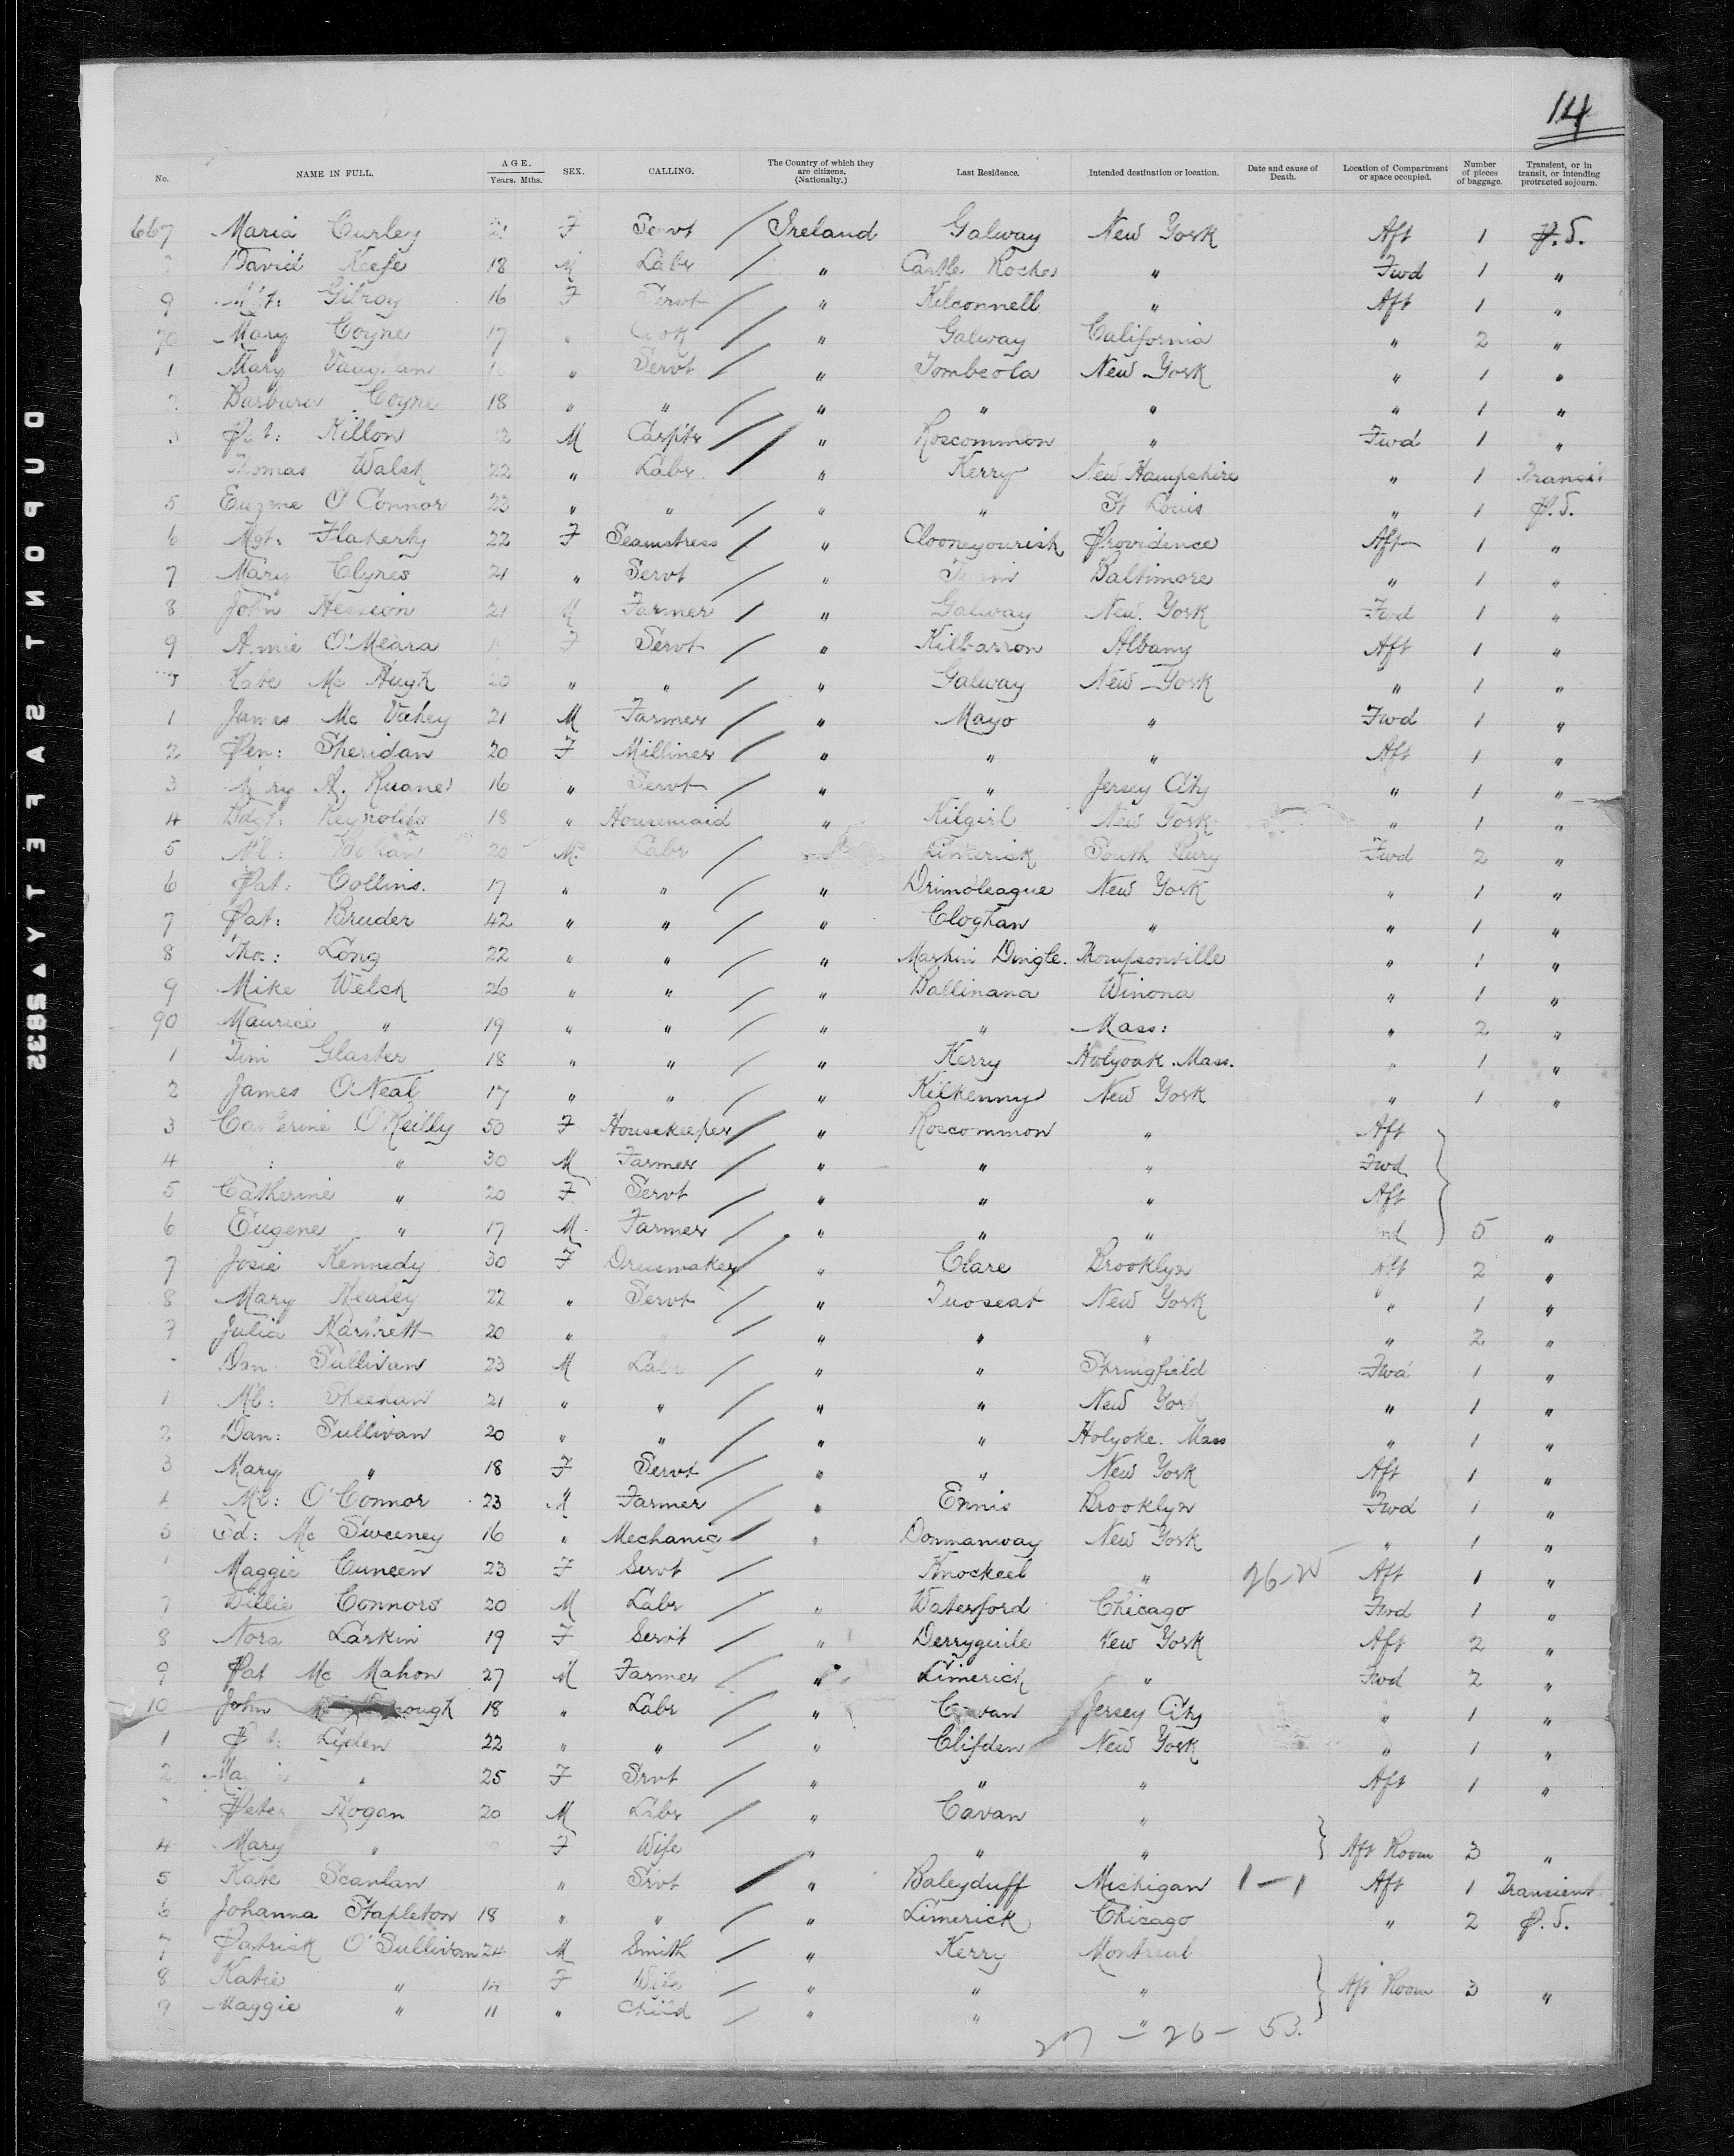 14
No. NAME IN FULL. AGE. Years. Mths. SEX. CALLING. The Country of which they are citizens. (Nationalty.) Last Residence. Intended destination or location. Date and cause of Death. Location of Compartment or space occupied. Number of pieces of baggage. Transient, or in transit, or intending protracted sojourn.
667 Maria Curley 21 F Servt / Ireland Galway New York Aft 1 P.S.
David Keefe 18 M Labr / " Castle Roche " Fwd 1 "
9 Mgt: Gilroy 16 F Servt / " Kilconnell " Aft 1 "
70 Mary Coyne 17 " Cook / " Galway California " 2 "
1 Mary Vaughan " Servt / " Tombeola New York " 1 "
2 Barbara Coyne 18 " " / " " " " 1 "
3 Pat: Killon M Carptr / " Roscommon " Fwd 1 "
Thomas Walsh 22 " Labr / " Kerry New Hampshire " 1 Transit
5 Eugene O'Connor 23 " " / " " St Louis " 1 P.S.
6 Mgt: Flaherty 22 F Seamstress / " Clooneyourish Providence Aft 1 "
7 Mary Clynes 21 " Servt / " Baltimore " 1 "
8 John Hession 21 M Farmer / " Galway New York Fwd 1 "
9 Annie O'Meara F Servt / " Kilbarron Albany Aft 1 "
Kate Mc Hugh 20 " " / " Galway New York " 1 "
1 James Mc Vahey 21 M Farmer / " Mayo " Fwd 1 "
2 Pen: Sheridan 20 F Milliner / " " " Aft 1 "
3 Mary A. Ruane 16 " Servt / " " Jersey City " 1 "
4 Bdgt: Reynolds 18 " Housemaid " Kilgirl New York " 1 "
5 Ml: 20 M Labr / Limerick South Fwd 2 "
6 Pat: Collins. 17 " " / " Drimoleague New York " 1 "
7 Pat: Bruder 42 " " / " Cloghan " " 1 "
8 Thos: Long 22 " " / " Markin Dingle. Thompsonville " 1 "
9 Mike Welch 26 " " / " Ballinana Winona " 1 "
90 Maurice " 19 " " / " " Mass: " 2 "
1 Tim Glaster 18 " " / " Kerry Holyoak. Mass. " 1 "
2 James O'Neal 17 " " / " Kilkenny New York " 1 "
3 Catherine O'Reilly 50 F Housekeeper / " Roscommon " Aft
4 " 30 M Farmer / " " " Fwd
5 Catherine " 20 F Servt / " " " Aft
6 Eugene " 17 M Farmer / " " " Fwd 5 "
7 Josie Kennedy 30 F Dressmaker / " Clare Brooklyn Aft 2 "
8 Mary Healey 22 " Servt / " Tuoseat New York " 1 "
Julia Hartnett 20 " " / " " " " 2 "
Dan Sullivan 23 M Labr / " " Springfield Fwd 1 "
1 Ml: Sheehan 21 " " / " " New York " 1 "
2 Dan: Sullivan 20 " " / " " Holyoke. Mass " 1 "
3 Mary " 18 F Servt / " " New York Aft 1 "
4 Ml: O'Connor 23 M Farmer / " Ennis Brooklyn Fwd 1 "
5 Ed: Mc Sweeney 16 " Mechanic / " Donmanway New York " 1 "
Maggie Cuneen 23 F Servt / Knockeel " Aft 1 "
7 Willie Connors 20 M Labr / " Waterford Chicago Fwd 1 "
8 Nora Larkin 19 F Servt / " Derryguile New York Aft 2 "
9 Pat Mc Mahon 27 M Farmer / " Limerick " Fwd 2 "
10 John 18 " Labr / " Cavan Jersey City " 1 "
1 Pat: Lyden 22 " " / " Clifden New York " 1 "
2 " 25 F Srvt / " " " Aft 1 "
Peter Hogan 20 M Labr / " Cavan "
4 Mary " F Wife " " " Aft Room 3 "
5 Kate Scanlan " Srvt / " Baleyduff Michigan 1 – 1 Aft 1 Transient
6 Johanna Stapleton 18 " " / " Limerick Chicago " 2 P.S.
7 Patrick O'Sullivan 24 M Smith / " Kerry Montreal
8 Katie " F Wife / " " " Aft Room 3 "
9 Maggie " 11 " Child / " " "
27 – 26 – 53.
DUPONT SAFETY ▲ 5832